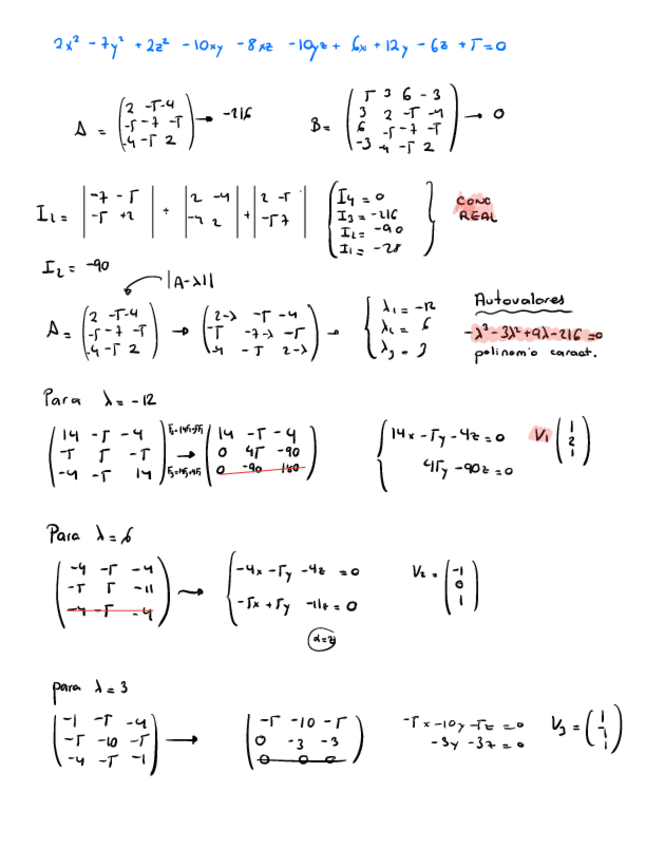 2x² - 7y² + 2z² - 10xy - 8xz - 10yz + 6x + 12y - 6z + 5 = 0
A = (2 -5 -4 / -5 -7 -5 / -4 -5 2) → -216
B = (5 3 6 -3 / 3 2 -5 -4 / 6 -5 -7 -5 / -3 -4 -5 2) → 0
I₂ = |-7 -5 / -5 +2| + |2 -4 / -4 2| + |2 -5 / -5 7|
I₄ = 0
I₃ = -216
I₂ = -90
I₁ = -28
CONO
REAL
I₂ = -90
|A-λI|
A = (2 -5 -4 / -5 -7 -5 / -4 -5 2) → (2-λ -5 -4 / -5 -7-λ -5 / -4 -5 2-λ) →
λ₁ = -12
λ₂ = 6
λ₃ = 3
Autovalores
-λ³-3λ²+9λ-216=0
polinomio caract.
Para λ = -12
(14 -5 -4 / -5 5 -5 / -4 -5 14) → (14 -5 -4 / 0 45 -90 / 0 -90 180)
14x - 5y - 4z = 0
45y - 90z = 0
V₁ (1 / 2 / 1)
Para λ = 6
(-4 -5 -4 / -5 5 -11 / -4 -5 -4) →
-4x - 5y - 4z = 0
-5x + 5y -11z = 0
α=z
V₂ = (-1 / 0 / 1)
para λ = 3
(-1 -5 -4 / -5 -10 -5 / -4 -5 -1) → (-5 -10 -5 / 0 -3 -3 / 0 0 0)
-5x -10y -5z = 0
-3y -3z = 0
V₃ = (1 / -1 / 1)